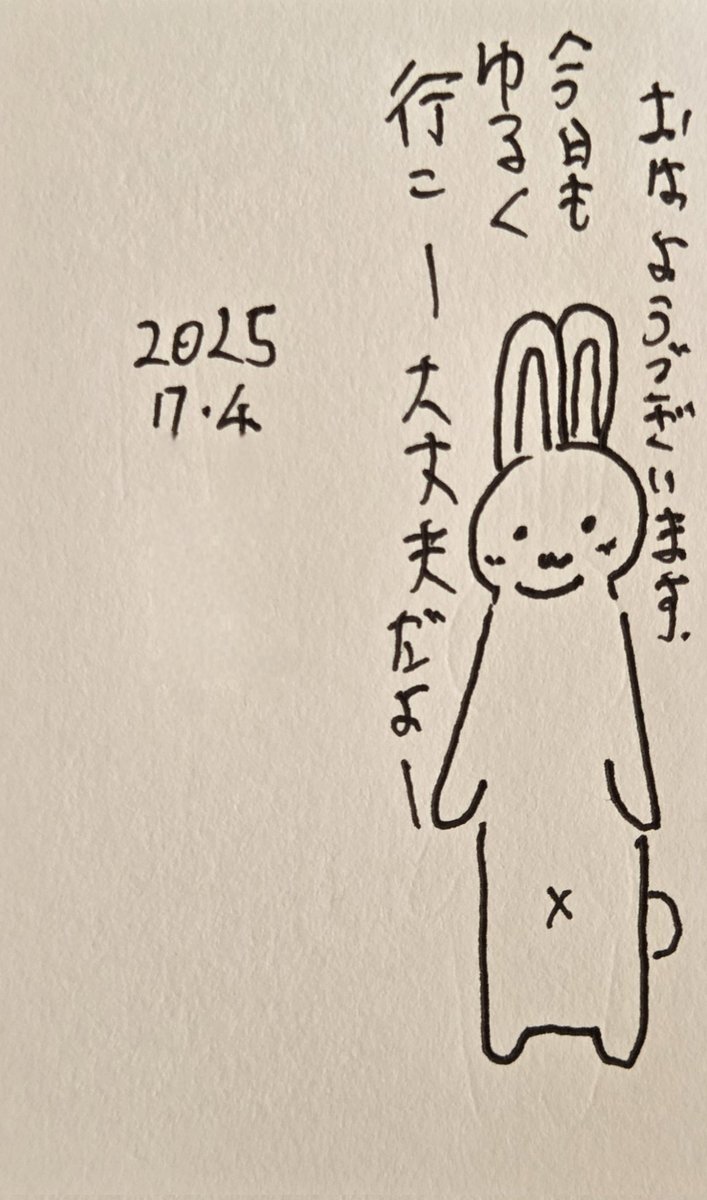 おはようございます.
今日も
ゆるく
行こー大丈夫だよー
2025
17.4